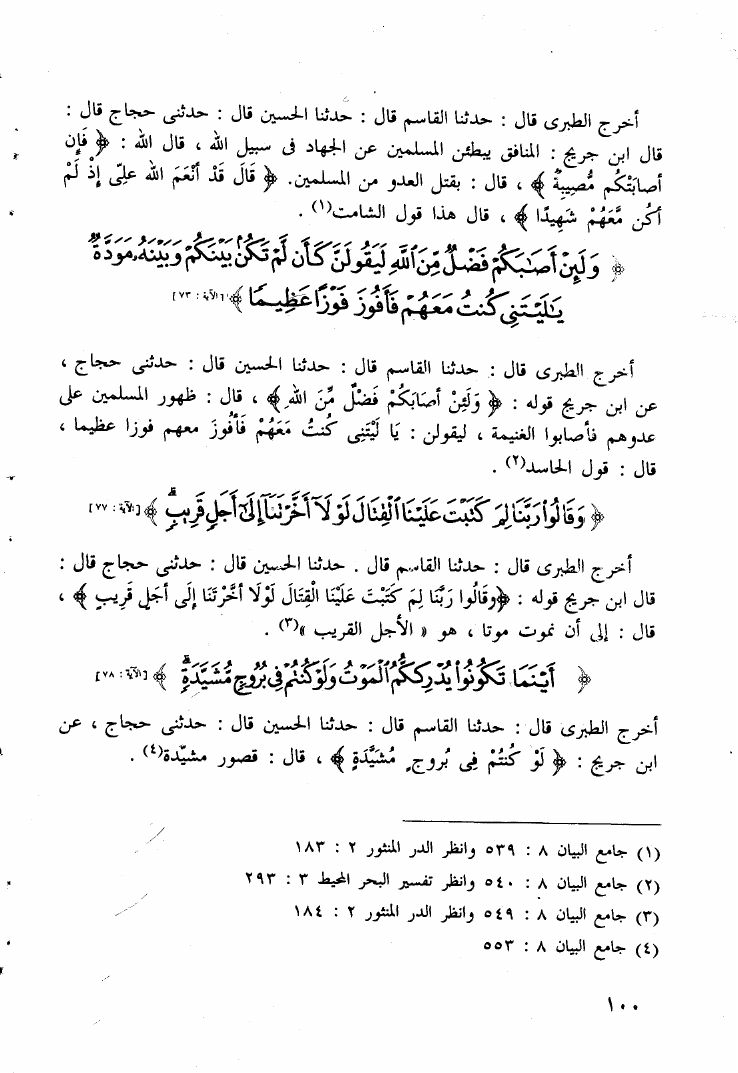 أخرج الطبرى قال : حدثنا القاسم قال : حدثنا الحسين قال : حدثنى حجاج قال :
قال ابن جريج : المنافق يبطئن المسلمين عن الجهاد فى سبيل الله ، قال الله : ﴿ فَإِن
أصابَتْكُم مُّصِيبَةٌ ﴾ ، قال : بقتل العدو من المسلمين. ﴿ قَالَ قَدْ أنْعَمَ الله علىّ إذْ لَمْ
أكن مَّعَهُمْ شَهِيدًا ﴾ ، قال هذا قول الشامت(١) .
﴿ وَلَئِنْ أَصَٰبَكُمْ فَضْلٌ مِّنَ ٱللَّهِ لَيَقُولَنَّ كَأَن لَّمْ تَكُنۢ بَيْنَكُمْ وَبَيْنَهُۥ مَوَدَّةٌ
يَٰلَيْتَنِى كُنتُ مَعَهُمْ فَأَفُوزَ فَوْزًا عَظِيمًا ﴾ [الآية : ٧٣]
أخرج الطبرى قال : حدثنا القاسم قال : حدثنا الحسين قال : حدثنى حجاج ،
عن ابن جريج قوله : ﴿ وَلَئِنْ أصَابَكُمْ فَضْلٌ مِّنَ اللهِ ﴾ ، قال : ظهور المسلمين على
عدوهم فأصابوا الغنيمة ، ليقولن : يَا لَيْتَنِى كُنتُ مَعَهُمْ فَأفُوزَ معهم فوزا عظيما ،
قال : قول الحاسد(٢) .
﴿ وَقَالُوا۟ رَبَّنَا لِمَ كَتَبْتَ عَلَيْنَا ٱلْقِتَالَ لَوْلَآ أَخَّرْتَنَآ إِلَىٰٓ أَجَلٍ قَرِيبٍۗ ﴾ [الآية : ٧٧]
أخرج الطبرى قال : حدثنا القاسم قال . حدثنا الحسين قال : حدثنى حجاج قال :
قال ابن جريج قوله : ﴿وقَالُوا رَبَّنَا لِمَ كَتَبْتَ عَلَيْنَا الْقِتَالَ لَوْلَا أخَّرْتَنَا إلَى أجَلٍ قَرِيبٍ ﴾ ،
قال : إلى أن نموت موتا ، هو « الأجل القريب »(٣) .
﴿ أَيْنَمَا تَكُونُوا۟ يُدْرِككُّمُ ٱلْمَوْتُ وَلَوْ كُنتُمْ فِى بُرُوجٍ مُّشَيَّدَةٍۗ ﴾ [الآية : ٧٨]
أخرج الطبرى قال : حدثنا القاسم قال : حدثنا الحسين قال : حدثنى حجاج ، عن
ابن جريج : ﴿ لَوْ كُنتُمْ فِى بُروجٍ مُشَيَّدَةٍ ﴾ ، قال : قصور مشيّدة(٤) .
(١) جامع البيان ٨ : ٥٣٩ وانظر الدر المنثور ٢ : ١٨٣
(٢) جامع البيان ٨ : ٥٤٠ وانظر تفسير البحر المحيط ٣ : ٢٩٣
(٣) جامع البيان ٨ : ٥٤٩ وانظر الدر المنثور ٢ : ١٨٤
(٤) جامع البيان ٨ : ٥٥٣
١٠٠